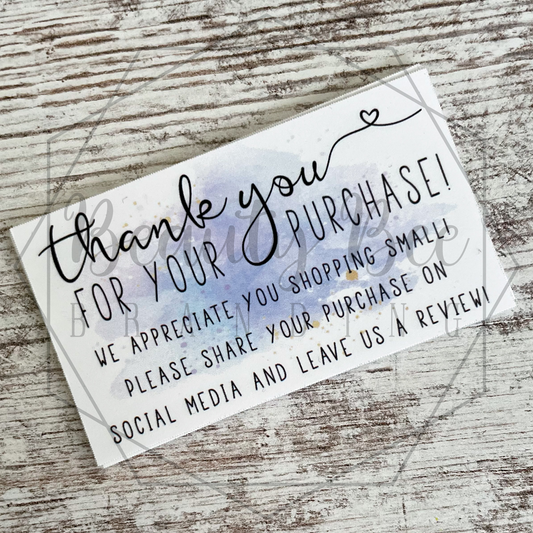 thank you
FOR YOUR PURCHASE!
WE APPRECIATE YOU SHOPPING SMALL!
PLEASE SHARE YOUR PURCHASE ON
SOCIAL MEDIA AND LEAVE US A REVIEW!
Beauty Bee
BRANDING